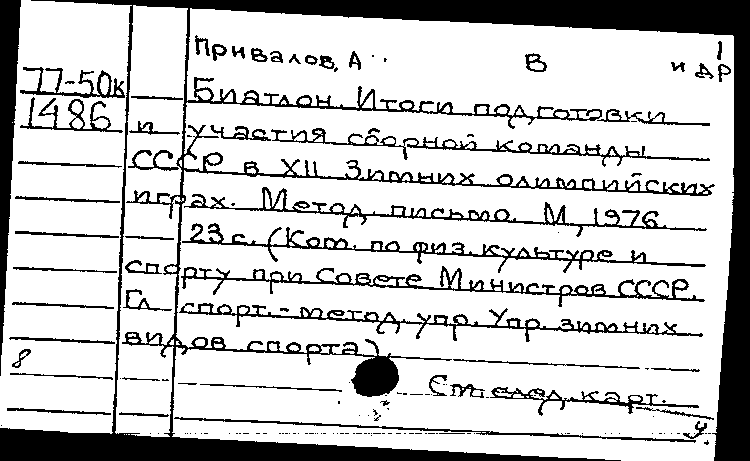 1
Привалов, А.. В и др
77-50к Биатлон. Итоги подготовки
1486 и участия сборной команды
СССР в XII Зимних олимпийских
играх. Метод. письмо. М, 1976.
23 с. (Ком. по физ. культуре и
спорту при Совете Министров СССР.
Гл спорт.-метод. упр. Упр. зимних
видов спорта).
8 См. след. карт.
У.